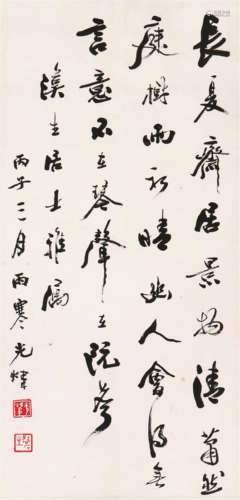 長夏齋居景物清蕭然
疎樹雨初晴幽人會得無
言意不在琴聲在阮
漢生居士雅屬
丙子月雨寒光煒